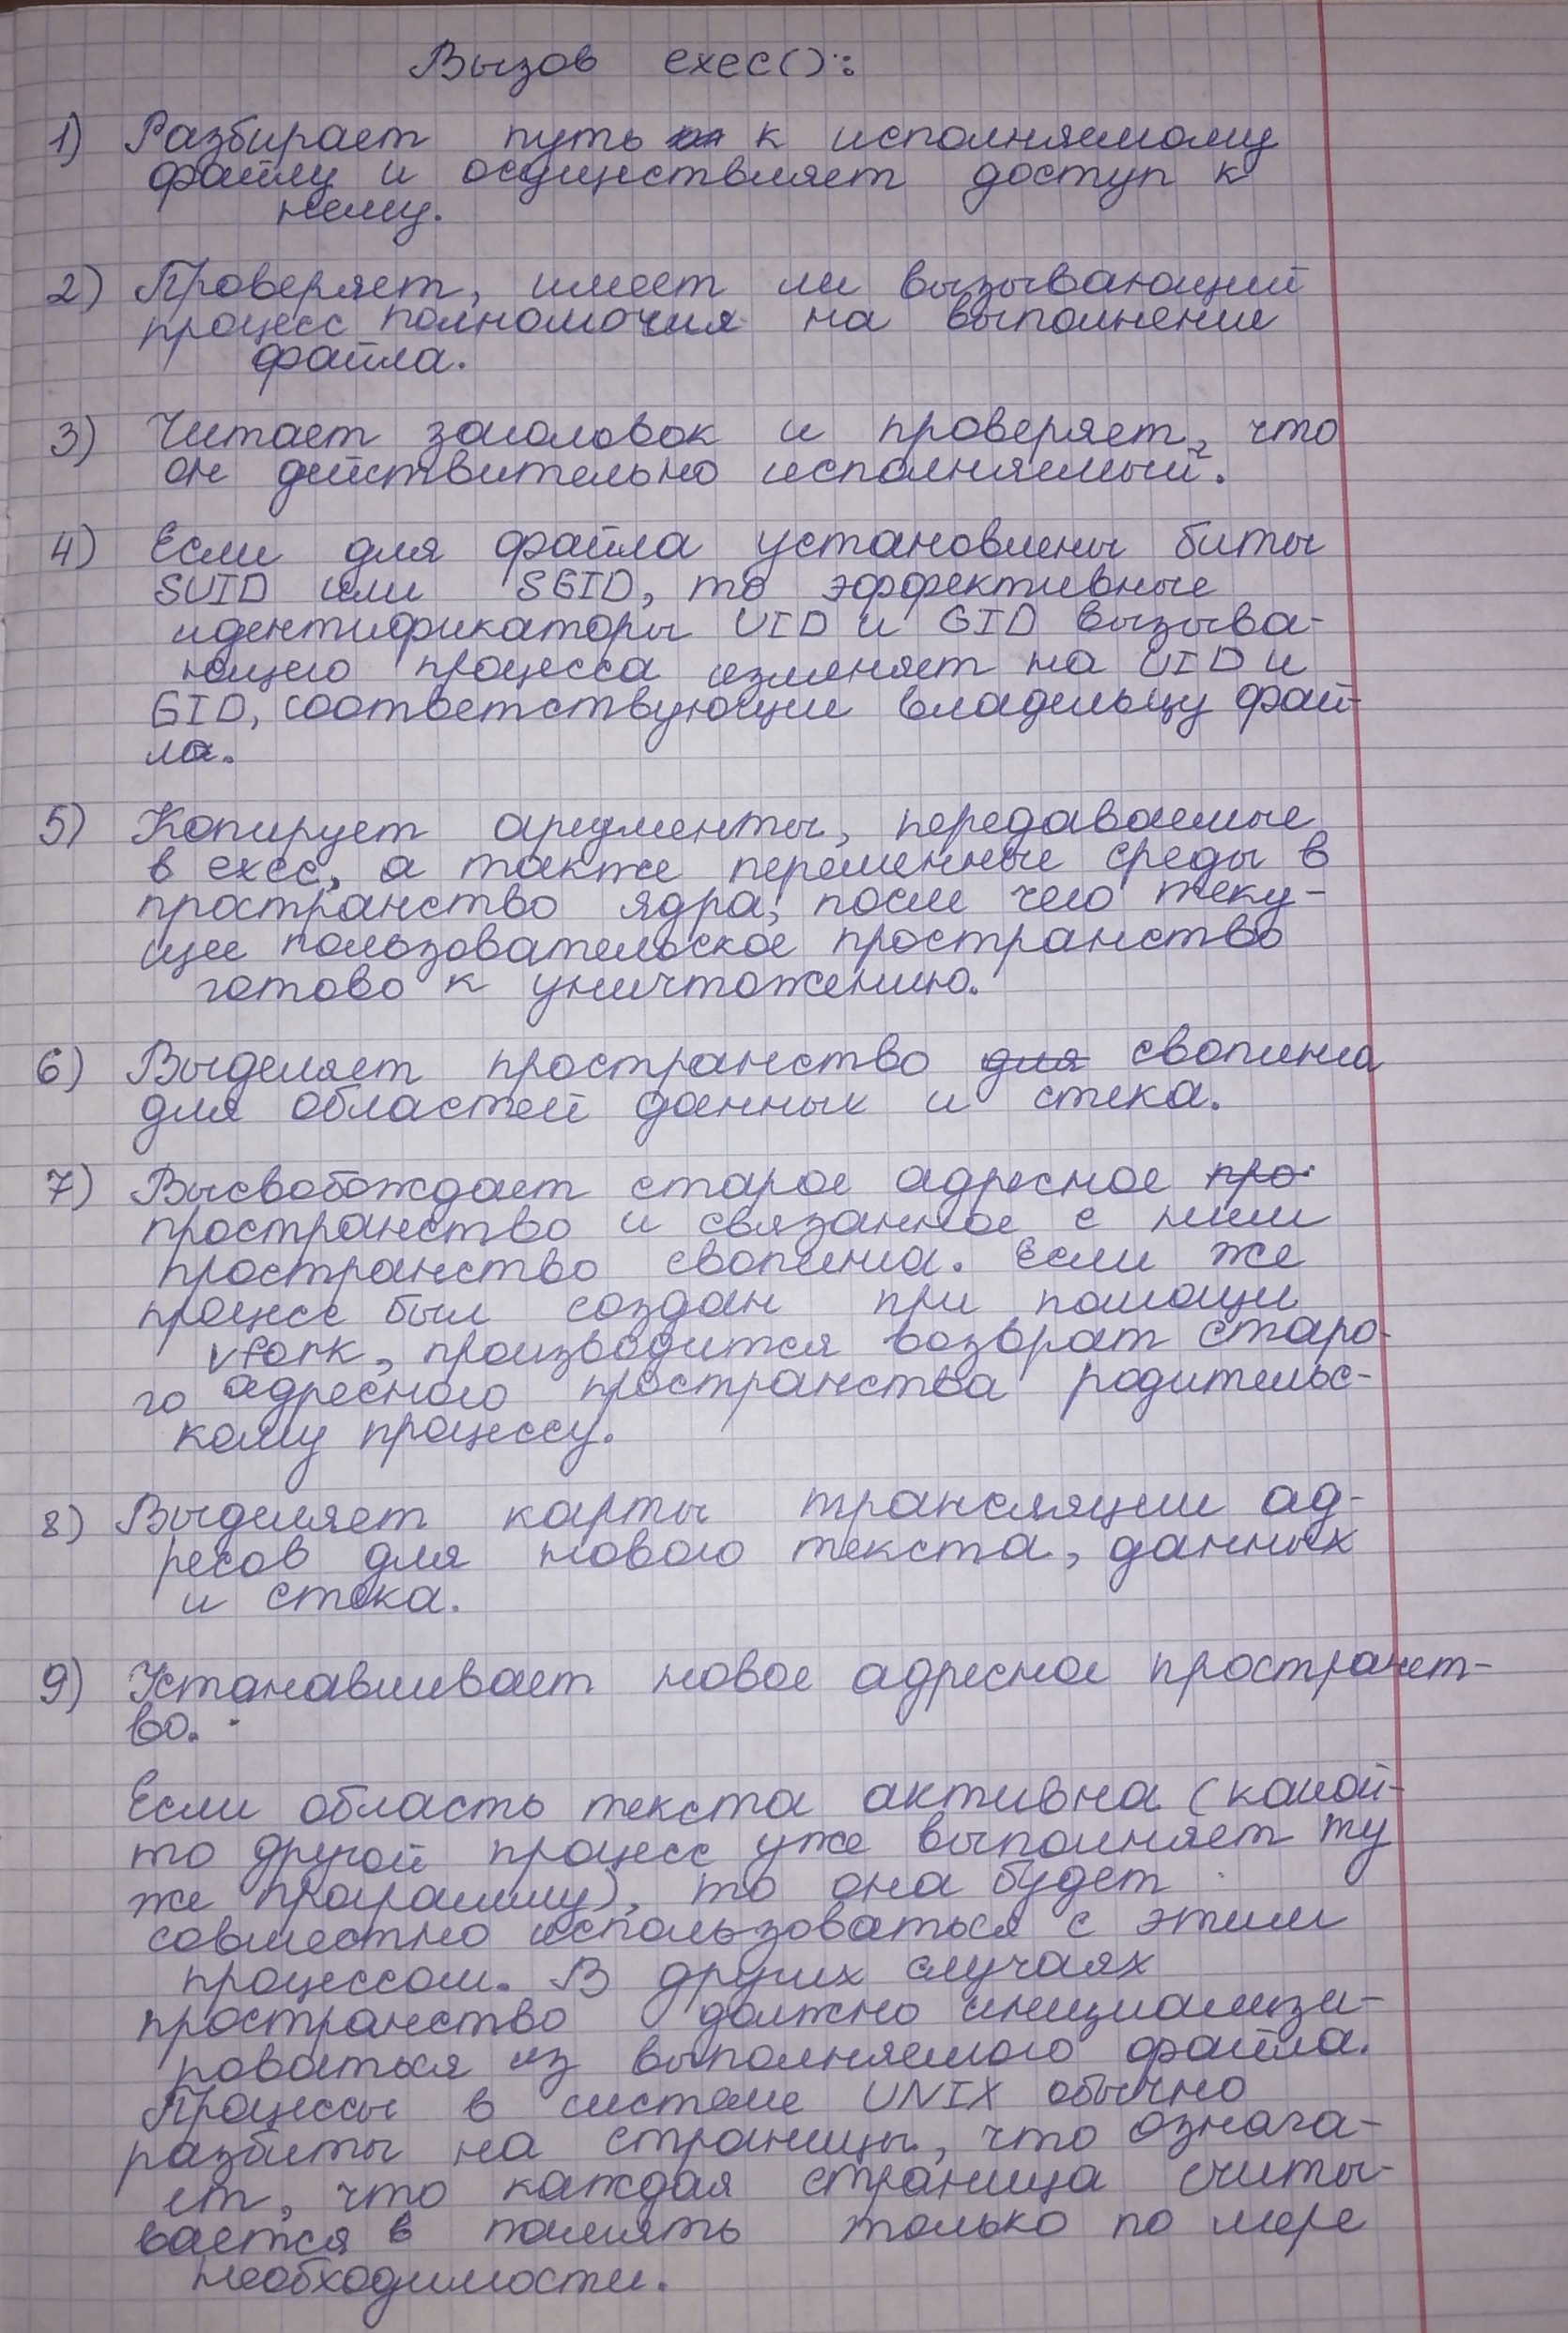 Вызов exec():
1) Разбирает путь к исполняемому
файлу и осуществляет доступ к
нему.
2) Проверяет, имеет ли вызывающий
процесс полномочия на выполнение
файла.
3) Читает заголовок и проверяет, что
он действительно исполняемый.
4) Если для файла установлены биты
SUID или SGID, то эффективные
идентификаторы UID и GID вызыва-
ющего процесса изменяет на UID и
GID, соответствующие владельцу фай-
ла.
5) Копирует аргументы, передаваемые
в exec, а также переменные среды в
пространство ядра, после чего теку-
щее пользовательское пространство
готово к уничтожению.
6) Выделяет пространство для свопинга
для областей данных и стека.
7) Высвобождает старое адресное про
пространство и связанное с ним
пространство свопинга. Если же
процесс был создан при помощи
vfork, производится возврат старо-
го адресного пространства родительс-
кому процессу.
8) Выделяет карты трансляции ад-
ресов для нового текста, данных
и стека.
9) Устанавливает новое адресное пространст-
во.
Если область текста активна (какой-
то другой процесс уже выполняет ту
же программу), то она будет
совместно использоваться с этим
процессом. В других случаях
пространство должно инициализи-
роваться из выполняемого файла.
Процессы в системе UNIX обычно
разбиты на страницы, что означа-
ет, что каждая страница считы-
вается в память только по мере
необходимости.